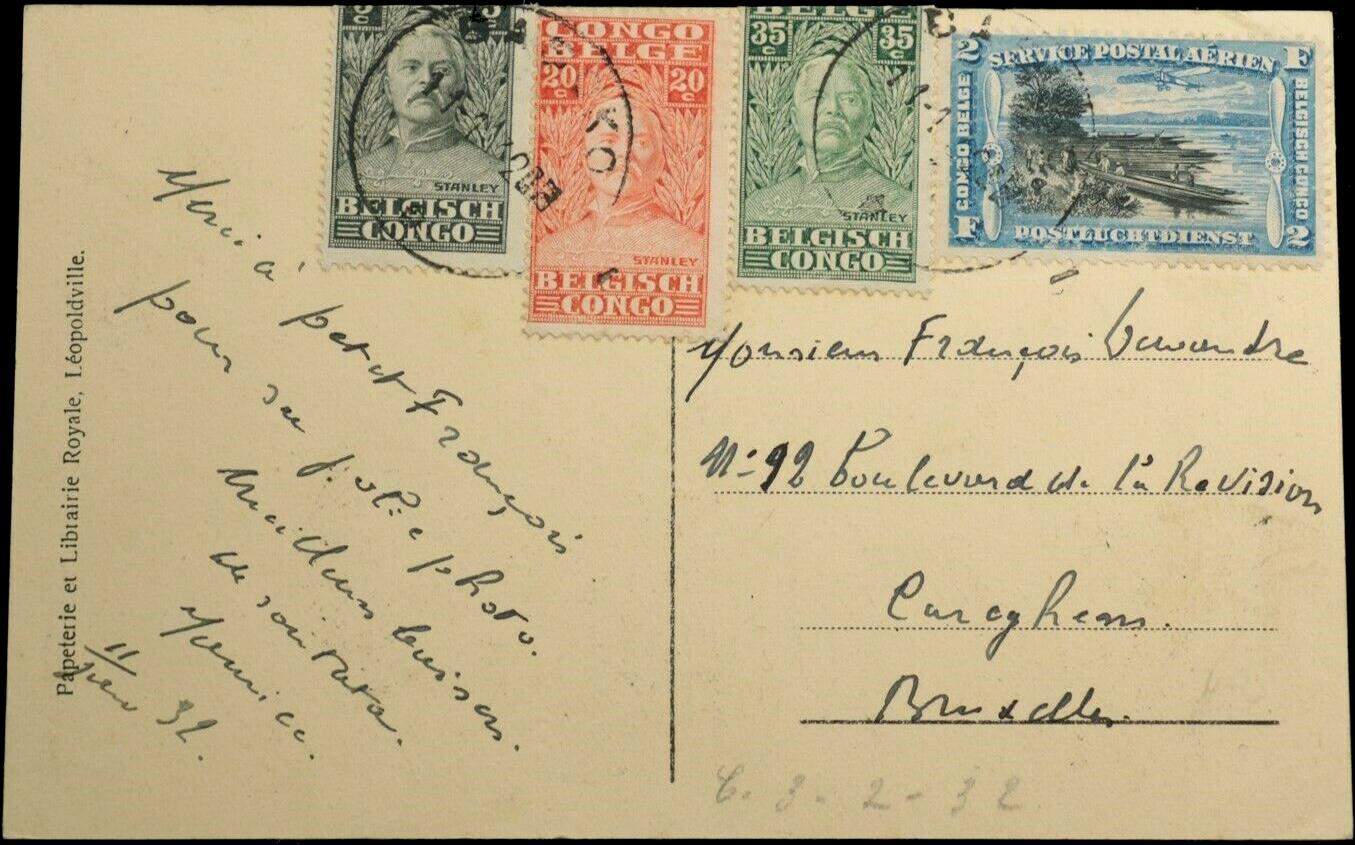 STANLEY
BELGISCH
CONGO
CONGO
BELGE
20 c 20 c
STANLEY
BELGISCH
CONGO
BELGE
35 c 35 c
STANLEY
BELGISCH
CONGO
2 F
SERVICE POSTAL AÉRIEN
CONGO BELGE
BELGISCH CONGO
POSTLUCHTDIENST
F 2
Papeterie et Librairie Royale, Léopoldville.
Merci à petit François
pour sa jolie photo.
Meilleurs baisers
de son tata.
11
32.
Monsieur François
N° 92 Boulevard de la Révision
Bruxelles.
3 - 2 - 32